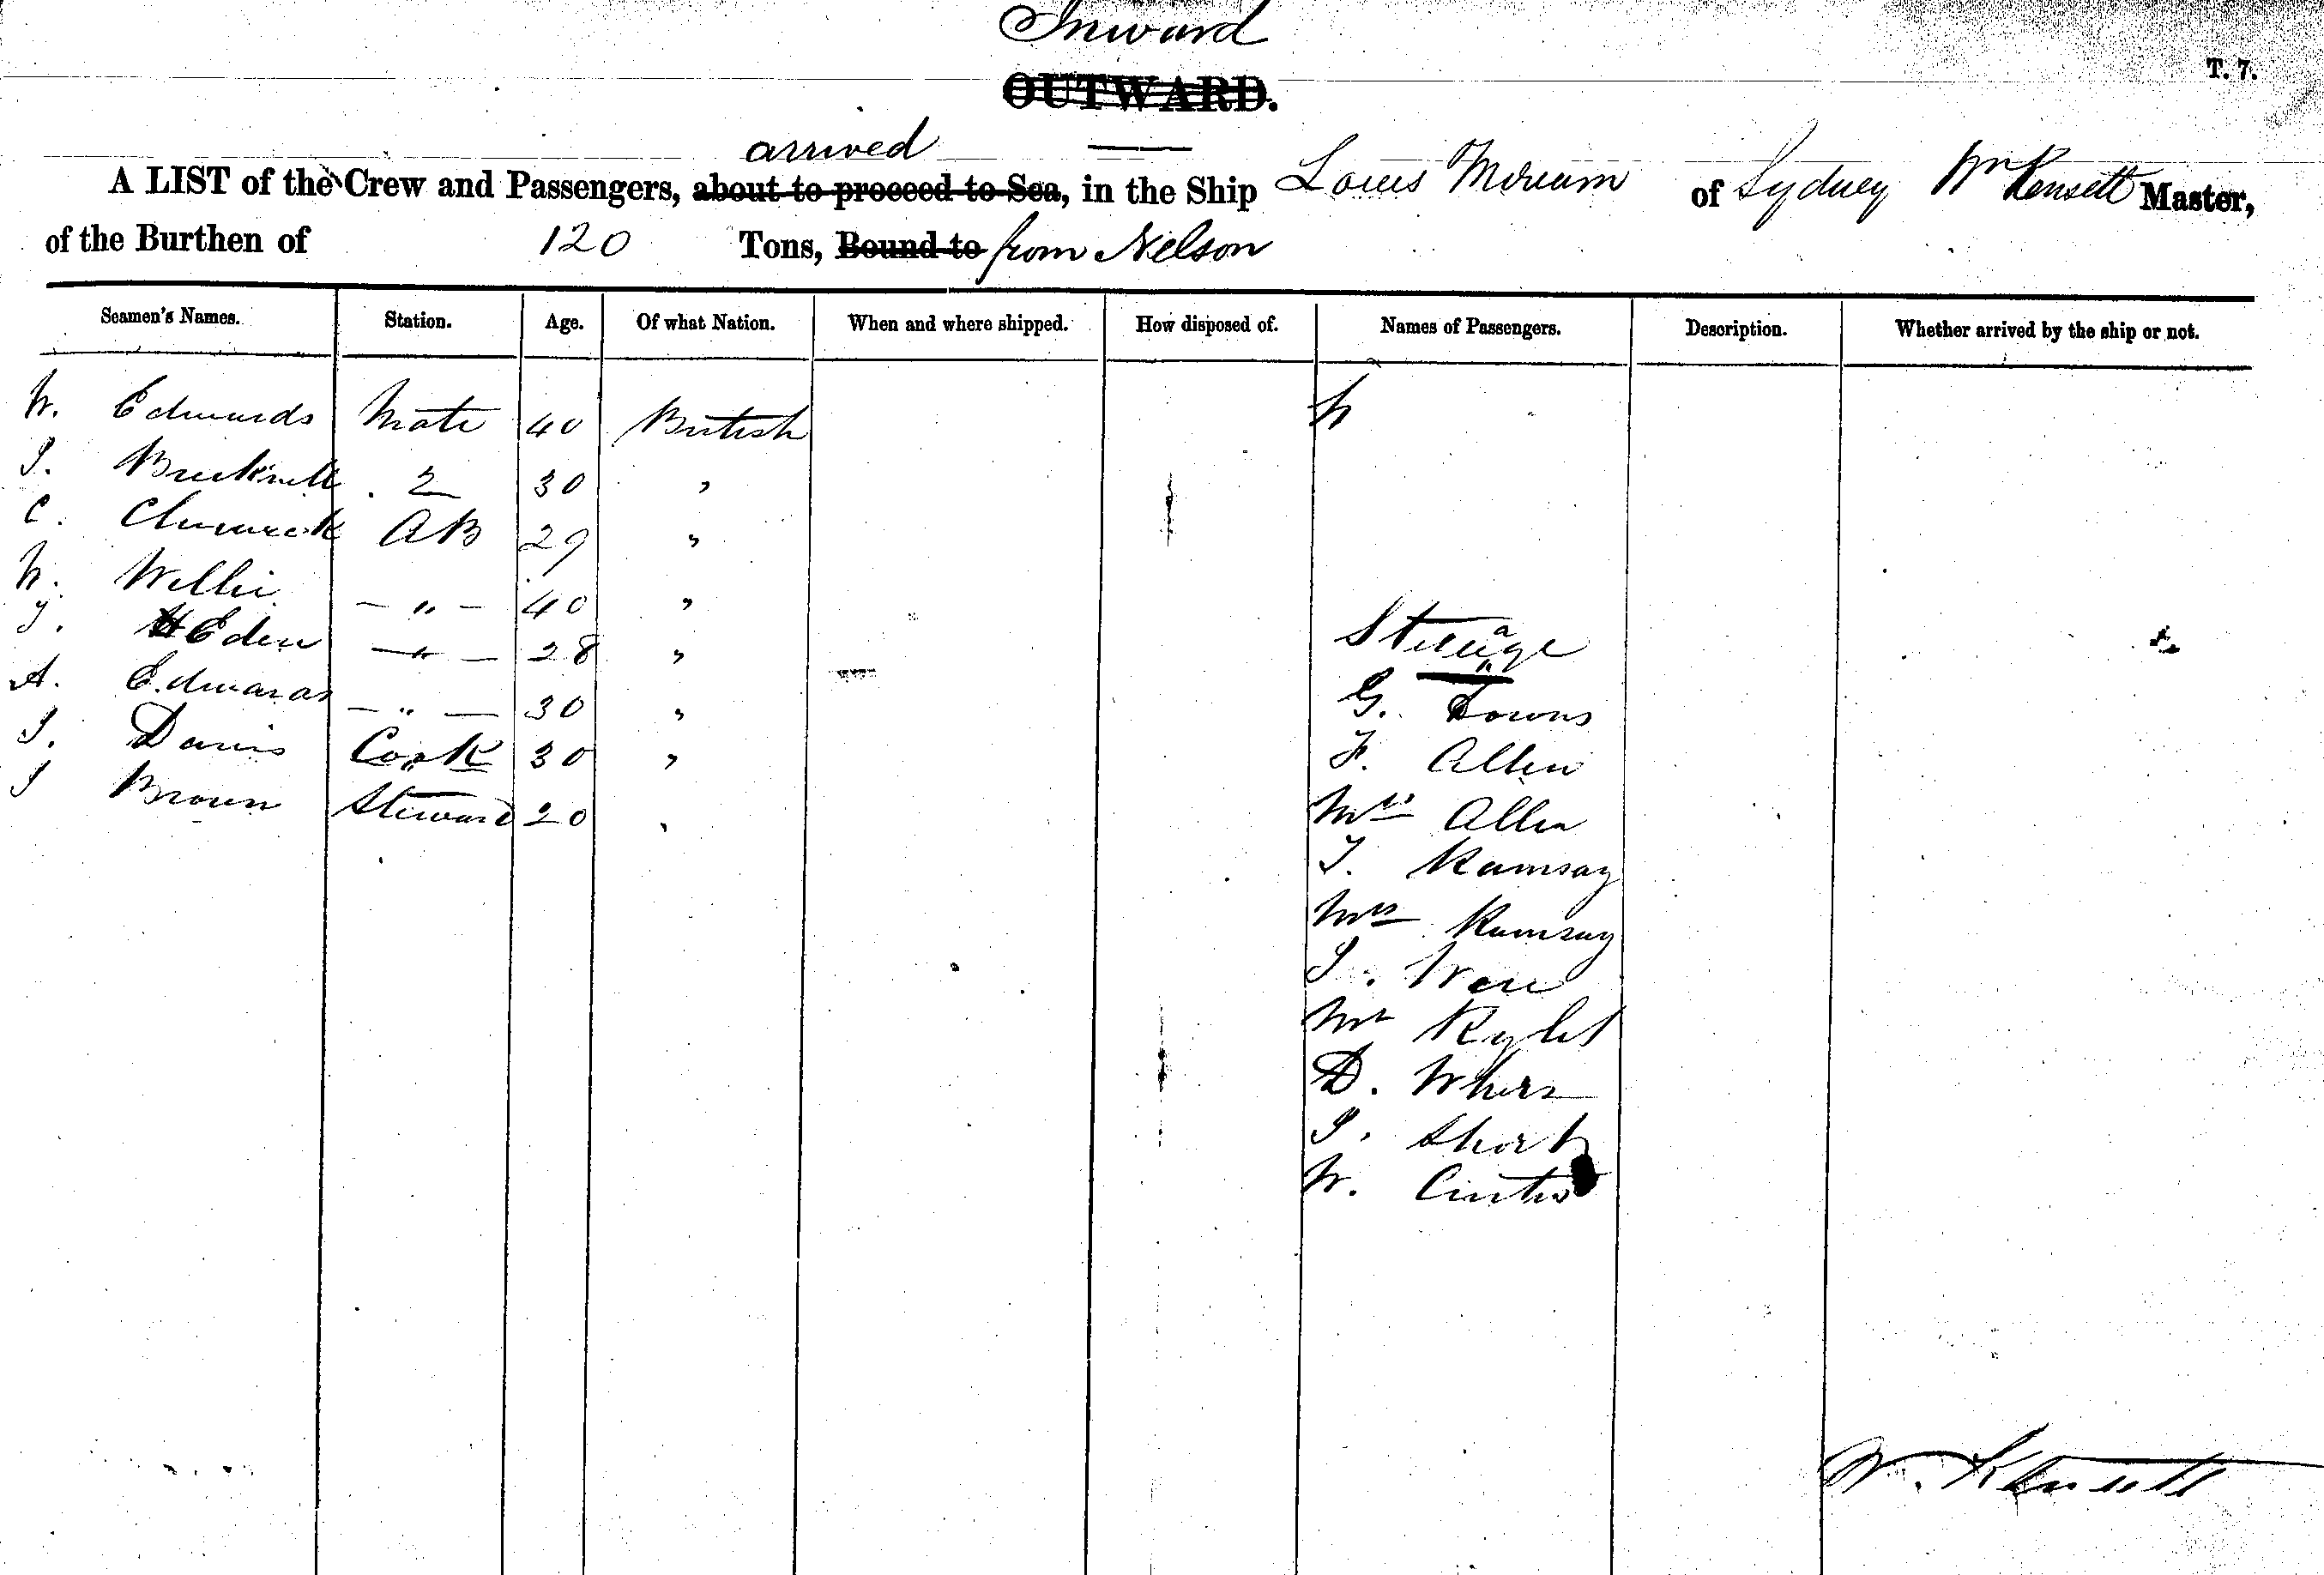 Inward
OUTWARD.
T. 7.
arrived
A LIST of the Crew and Passengers, about to proceed to Sea, in the Ship Louis Miriam of Sydney Wm Kensett Master,
of the Burthen of 120 Tons, Bound to from Nelson
Seamen's Names. Station. Age. Of what Nation. When and where shipped. How disposed of. Names of Passengers. Description. Whether arrived by the ship or not.
W. Edwards Mate 40 British
J. 2 30 "
C. AB 29 "
W. Willie - " - 40 "
J. Eden - " - 28 "
A. Edwards - " - 30 "
J. Davis Cook 30 "
J Brown Steward 20 "
Steerage
G. Towns
F. Allen
Mrs Allen
J. Ramsay
Mrs Ramsay
J. Ware
Mr
D.
J. Short
W.
W. Kensett